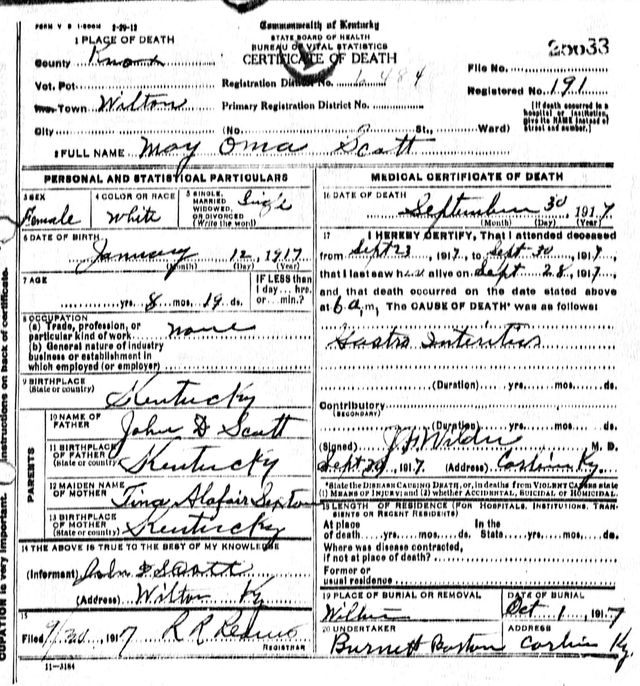 FORM V S 1-500M 2-29-12
Commonwealth of Kentucky
STATE BOARD OF HEALTH
BUREAU OF VITAL STATISTICS
CERTIFICATE OF DEATH
25033
1 PLACE OF DEATH
County Knox
Vot. Pct.
Town Wilton
City
Registration District No. 484
Primary Registration District No.
File No.
Registered No. 191
[If death occurred in a hospital or institution, give its NAME instead of street and number.]
(No. St., Ward)
2 FULL NAME May Oma Scott
PERSONAL AND STATISTICAL PARTICULARS
3 SEX
Female
4 COLOR OR RACE
White
5 SINGLE, MARRIED WIDOWED, OR DIVORCED (Write the word)
Single
6 DATE OF BIRTH
January 12, 1917
(Month) (Day) (Year)
7 AGE
yrs. 8 mos. 19 ds.
IF LESS than 1 day... hrs. or... min.?
8 OCCUPATION
(a) Trade, profession, or particular kind of work none
(b) General nature of industry
business or establishment in
which employed (or employer)
9 BIRTHPLACE
(State or country)
Kentucky
PARENTS
10 NAME OF FATHER
John D Scott
11 BIRTHPLACE OF FATHER
(State or country)
Kentucky
12 MAIDEN NAME OF MOTHER
Tina Alafair Sexton
13 BIRTHPLACE OF MOTHER
(State or country)
Kentucky
14 THE ABOVE IS TRUE TO THE BEST OF MY KNOWLEDGE
(Informant) John D Scott
(Address) Wilton Ky
15
Filed 9/30 1917
REGISTRAR
11-3184
MEDICAL CERTIFICATE OF DEATH
16 DATE OF DEATH
September 30, 1917
(Month) (Day) (Year)
17 I HEREBY CERTIFY, That I attended deceased
from Sept 23, 1917, to Sept 30, 1917,
that I last saw her alive on Sept 28, 1917,
and that death occurred on the date stated above
at 6 a,m, The CAUSE OF DEATH* was as follows:
Gastro Interitis
(Duration) yrs. mos. ds.
Contributory
(SECONDARY)
(Duration) yrs. mos. ds.
(Signed) M. D.
Sept 29, 1917 (Address) Corbin Ky.
*State the DISEASE CAUSING DEATH, or, in deaths from VIOLENT CAUSES state
(1) MEANS OF INJURY; and (2) whether ACCIDENTAL, SUICIDAL or HOMICIDAL.
18 LENGTH OF RESIDENCE (FOR HOSPITALS, INSTITUTIONS, TRANSIENTS OR RECENT RESIDENTS)
At place of death yrs. mos. ds.
In the State yrs. mos. ds.
Where was disease contracted,
if not at place of death?
Former or
usual residence
19 PLACE OF BURIAL OR REMOVAL
DATE OF BURIAL
Oct 1, 1917
20 UNDERTAKER
ADDRESS
Corbin Ky.
OCCUPATION is very important. instructions on back of certificate.